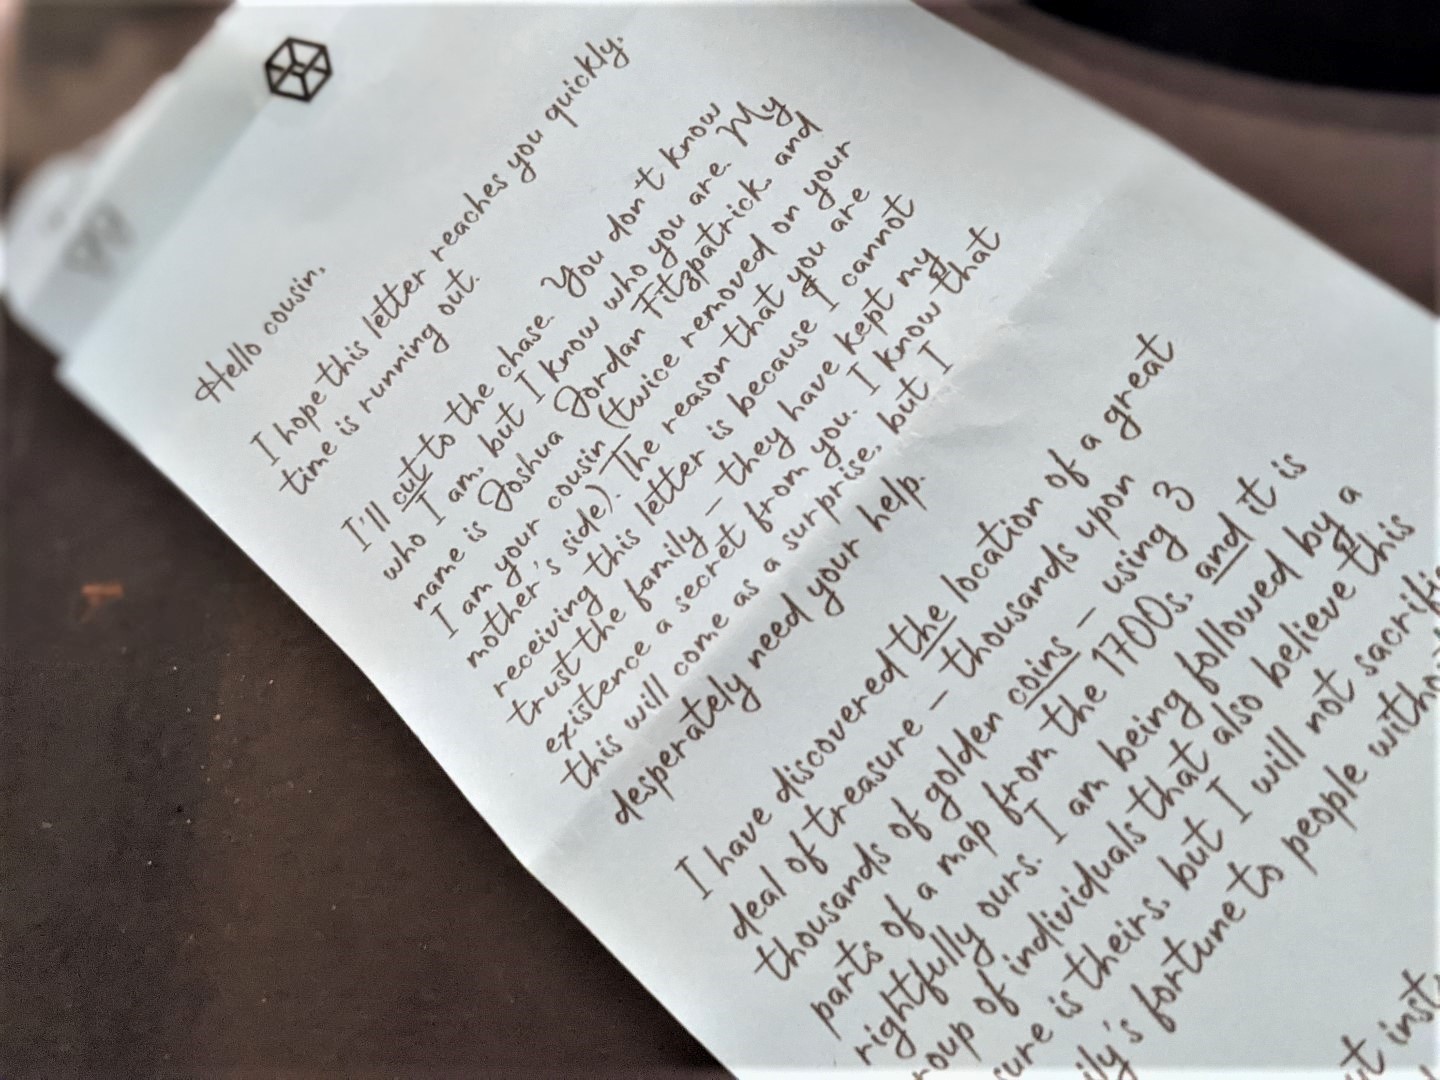 Hello cousin,
I hope this letter reaches you quickly.
time is running out.
I'll cut to the chase. You don't know
who I am, but I know who you are. My
name is Joshua Jordan Fitzpatrick, and
I am your cousin (twice removed on your
mother's side). The reason that you are
receiving this letter is because I cannot
trust the family - they have kept my
existence a secret from you. I know that
this will come as a surprise, but I
desperately need your help.
I have discovered the location of a great
deal of treasure - thousands upon
thousands of golden coins - using 3
parts of a map from the 1700s, and it is
rightfully ours. I am being followed by a
roup of individuals that also believe this
sure is theirs, but I will not sacrifi
ily's fortune to people witho